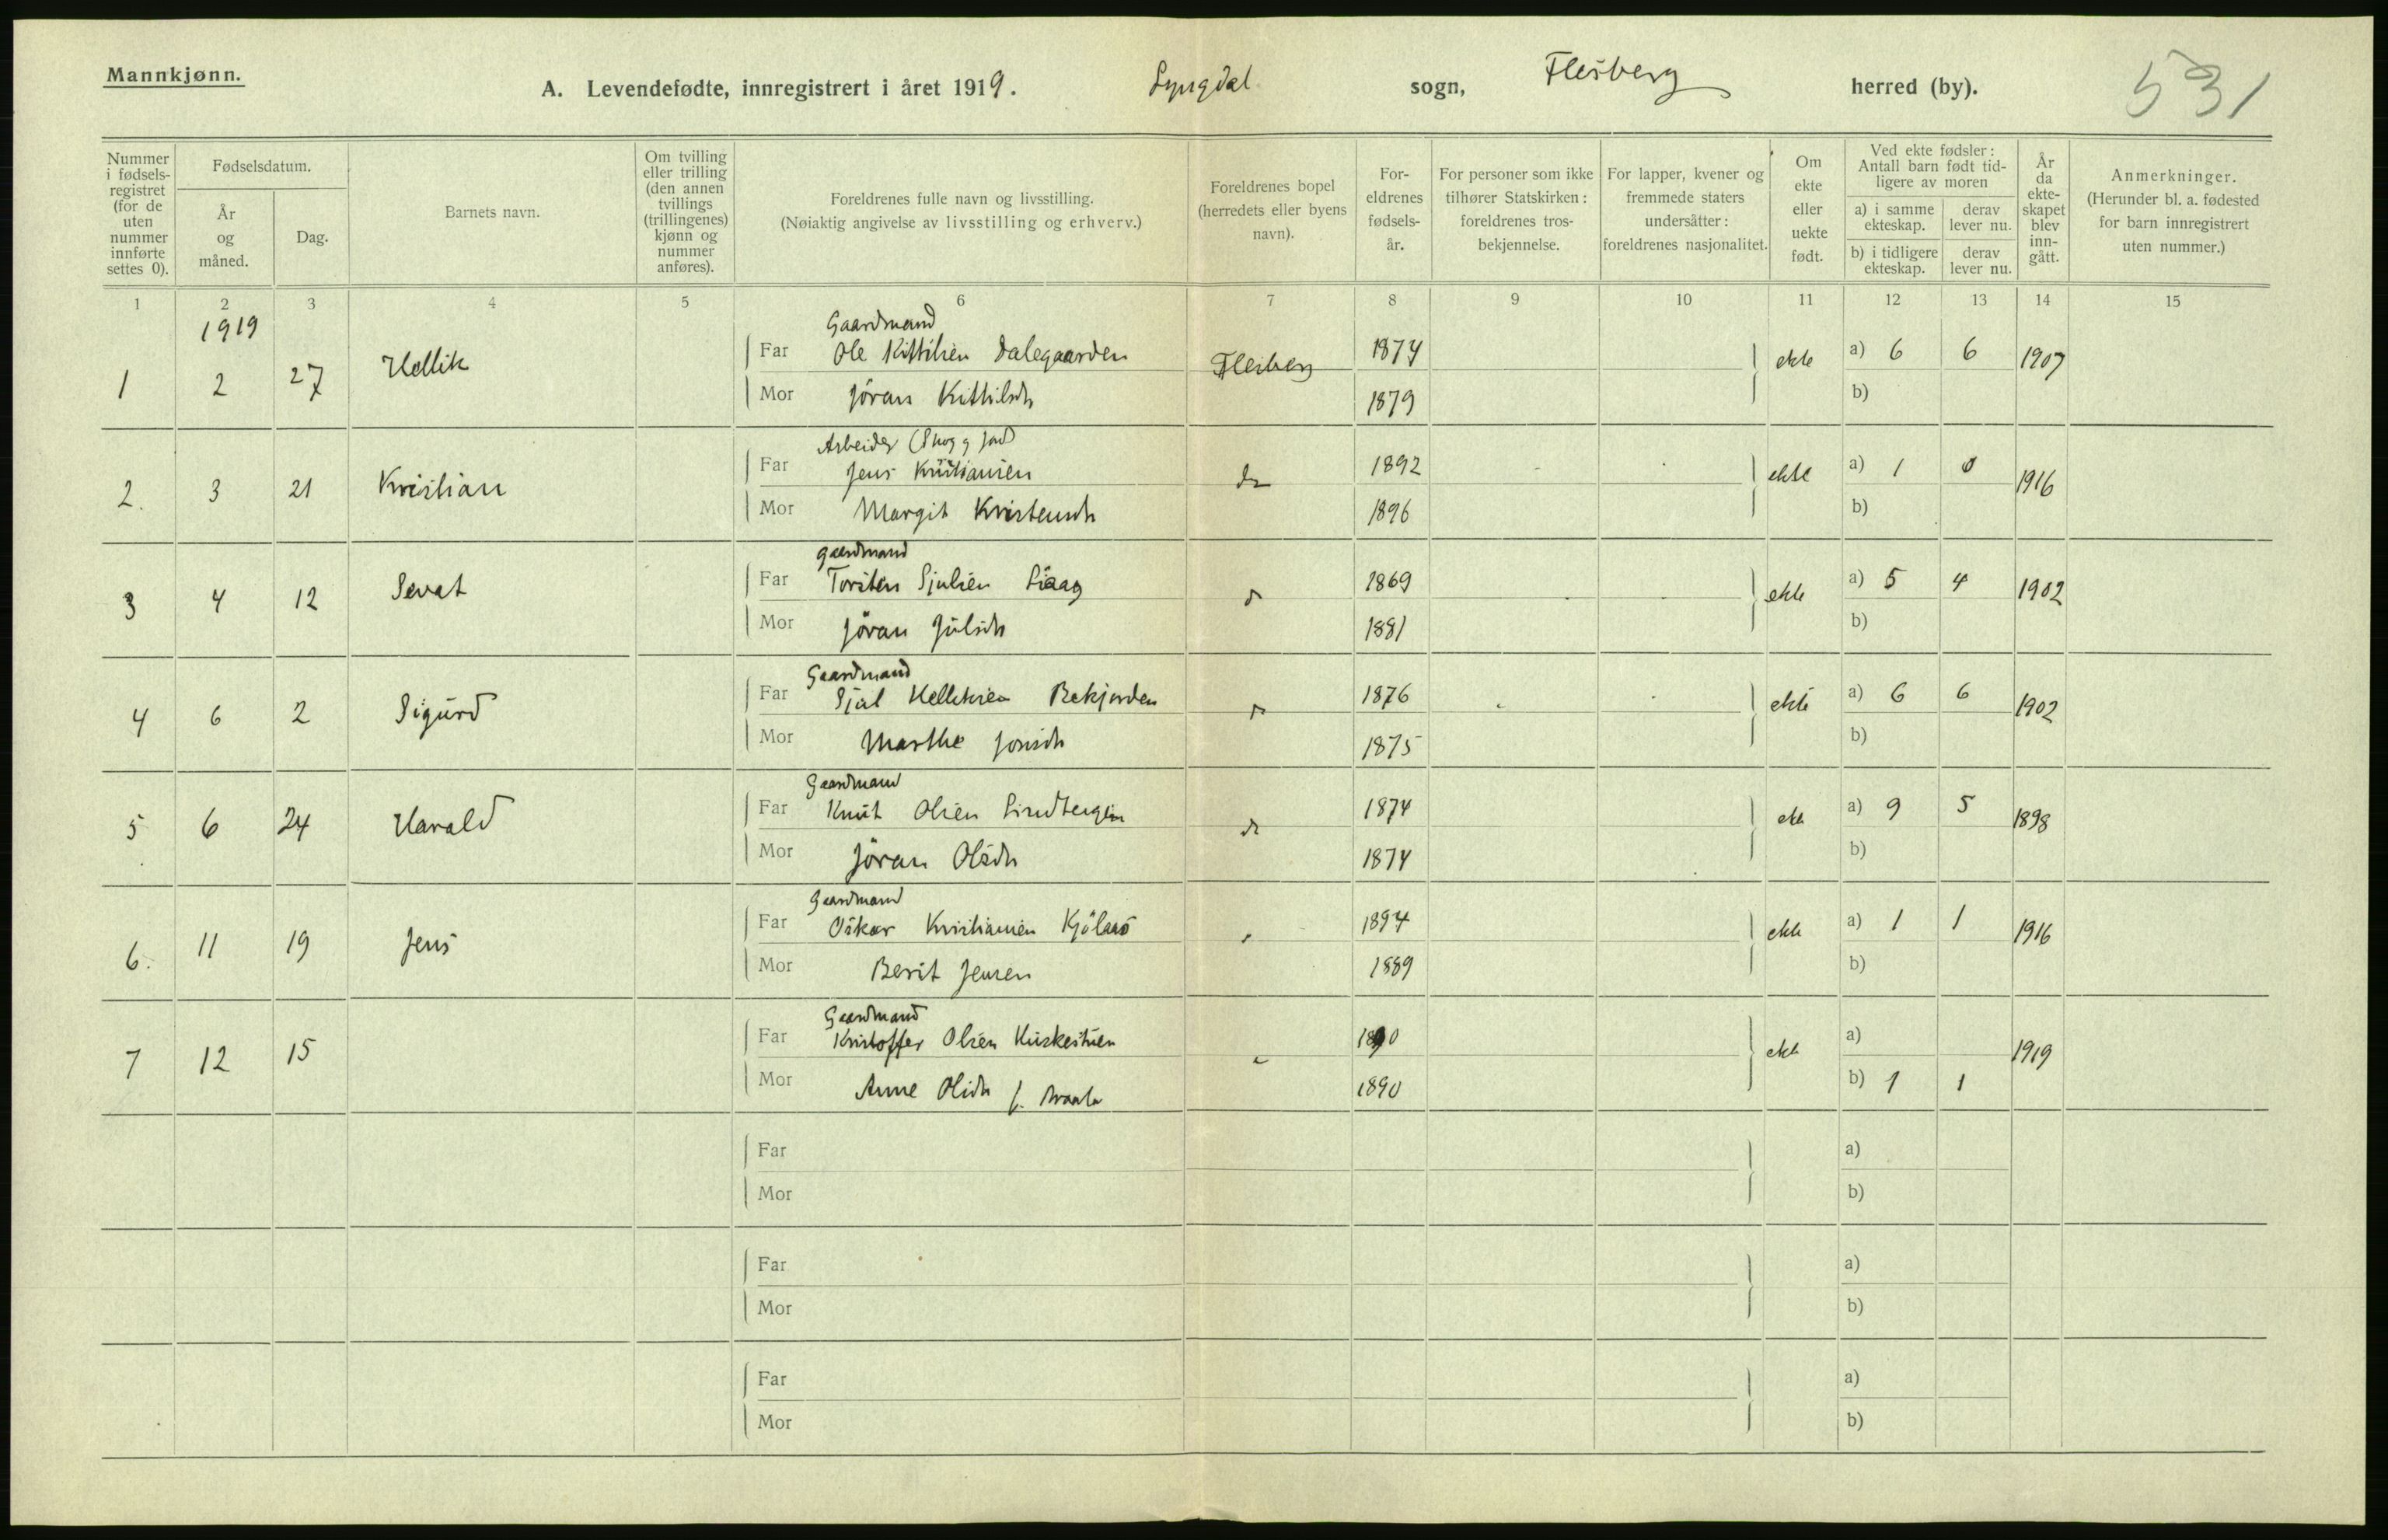 Mannkjønn.
A. Levendefødte, innregistrert i året 1919. Lyngdal sogn, Flesberg herred (by). 531
Nummer i fødselsregistret (for de uten nummer innførte settes 0).
Fødselsdatum.
År og måned.
Dag.
Barnets navn.
Om tvilling eller trilling (den annen tvillings (trillingenes) kjønn og nummer anføres).
Foreldrenes fulle navn og livsstilling.
(Nøiaktig angivelse av livsstilling og erhverv.)
Foreldrenes bopel (herredets eller byens navn).
Foreldrenes fødselsår.
For personer som ikke tilhører Statskirken: foreldrenes trosbekjennelse.
For lapper, kvener og fremmede staters undersåtter: foreldrenes nasjonalitet.
Om ekte eller uekte født.
Ved ekte fødsler: Antall barn født tidligere av moren
a) i samme ekteskap. derav lever nu.
b) i tidligere ekteskap. derav lever nu.
År da ekteskapet blev inngått.
Anmerkninger.
(Herunder bl. a. fødested for barn innregistrert uten nummer.)
1 2 3 4 5 6 7 8 9 10 11 12 13 14 15
1919
Gaardmand
1 2 27 Hellik Far Ole Kittilsen Dalegaarden Flesberg 1874 ekte a) 6 6 1907
Mor Jöran Kittilsdr 1879 b)
Arbeider (Skog og jord)
2. 3 21 Kristian Far Jens Kristiansen do 1892 ekte a) 1 0 1916
Mor Margit Kristensdr 1896 b)
Gaardmand
3 4 12 Sevat Far Torsten Sjulsen 1869 ekte a) 5 4 1902
Mor Jöran Julsdr 1881 b)
Gaardmand
4 6 2 Sigurd Far Sjul Helleksen Bekjorden 1876 ekte a) 6 6 1902
Mor Marthe Jonsdr 1875 b)
Gaardmand
5 6 24 Harald Far Knut Olsen 1874 ekte a) 9 5 1898
Mor Jöran Olsdr 1874 b)
Gaardmand
6. 11 19 Jens Far Oskar Kristiansen Kjölaas 1894 ekte a) 1 1 1916
Mor Berit Jensen 1889 b)
Gaardmand
7 12 15 Far Kristoffer Olsen 1890 ekte a) 1919
Mor Anne Olsdr f. Braata 1890 b) 1 1
Far a)
Mor b)
Far a)
Mor b)
Far a)
Mor b)